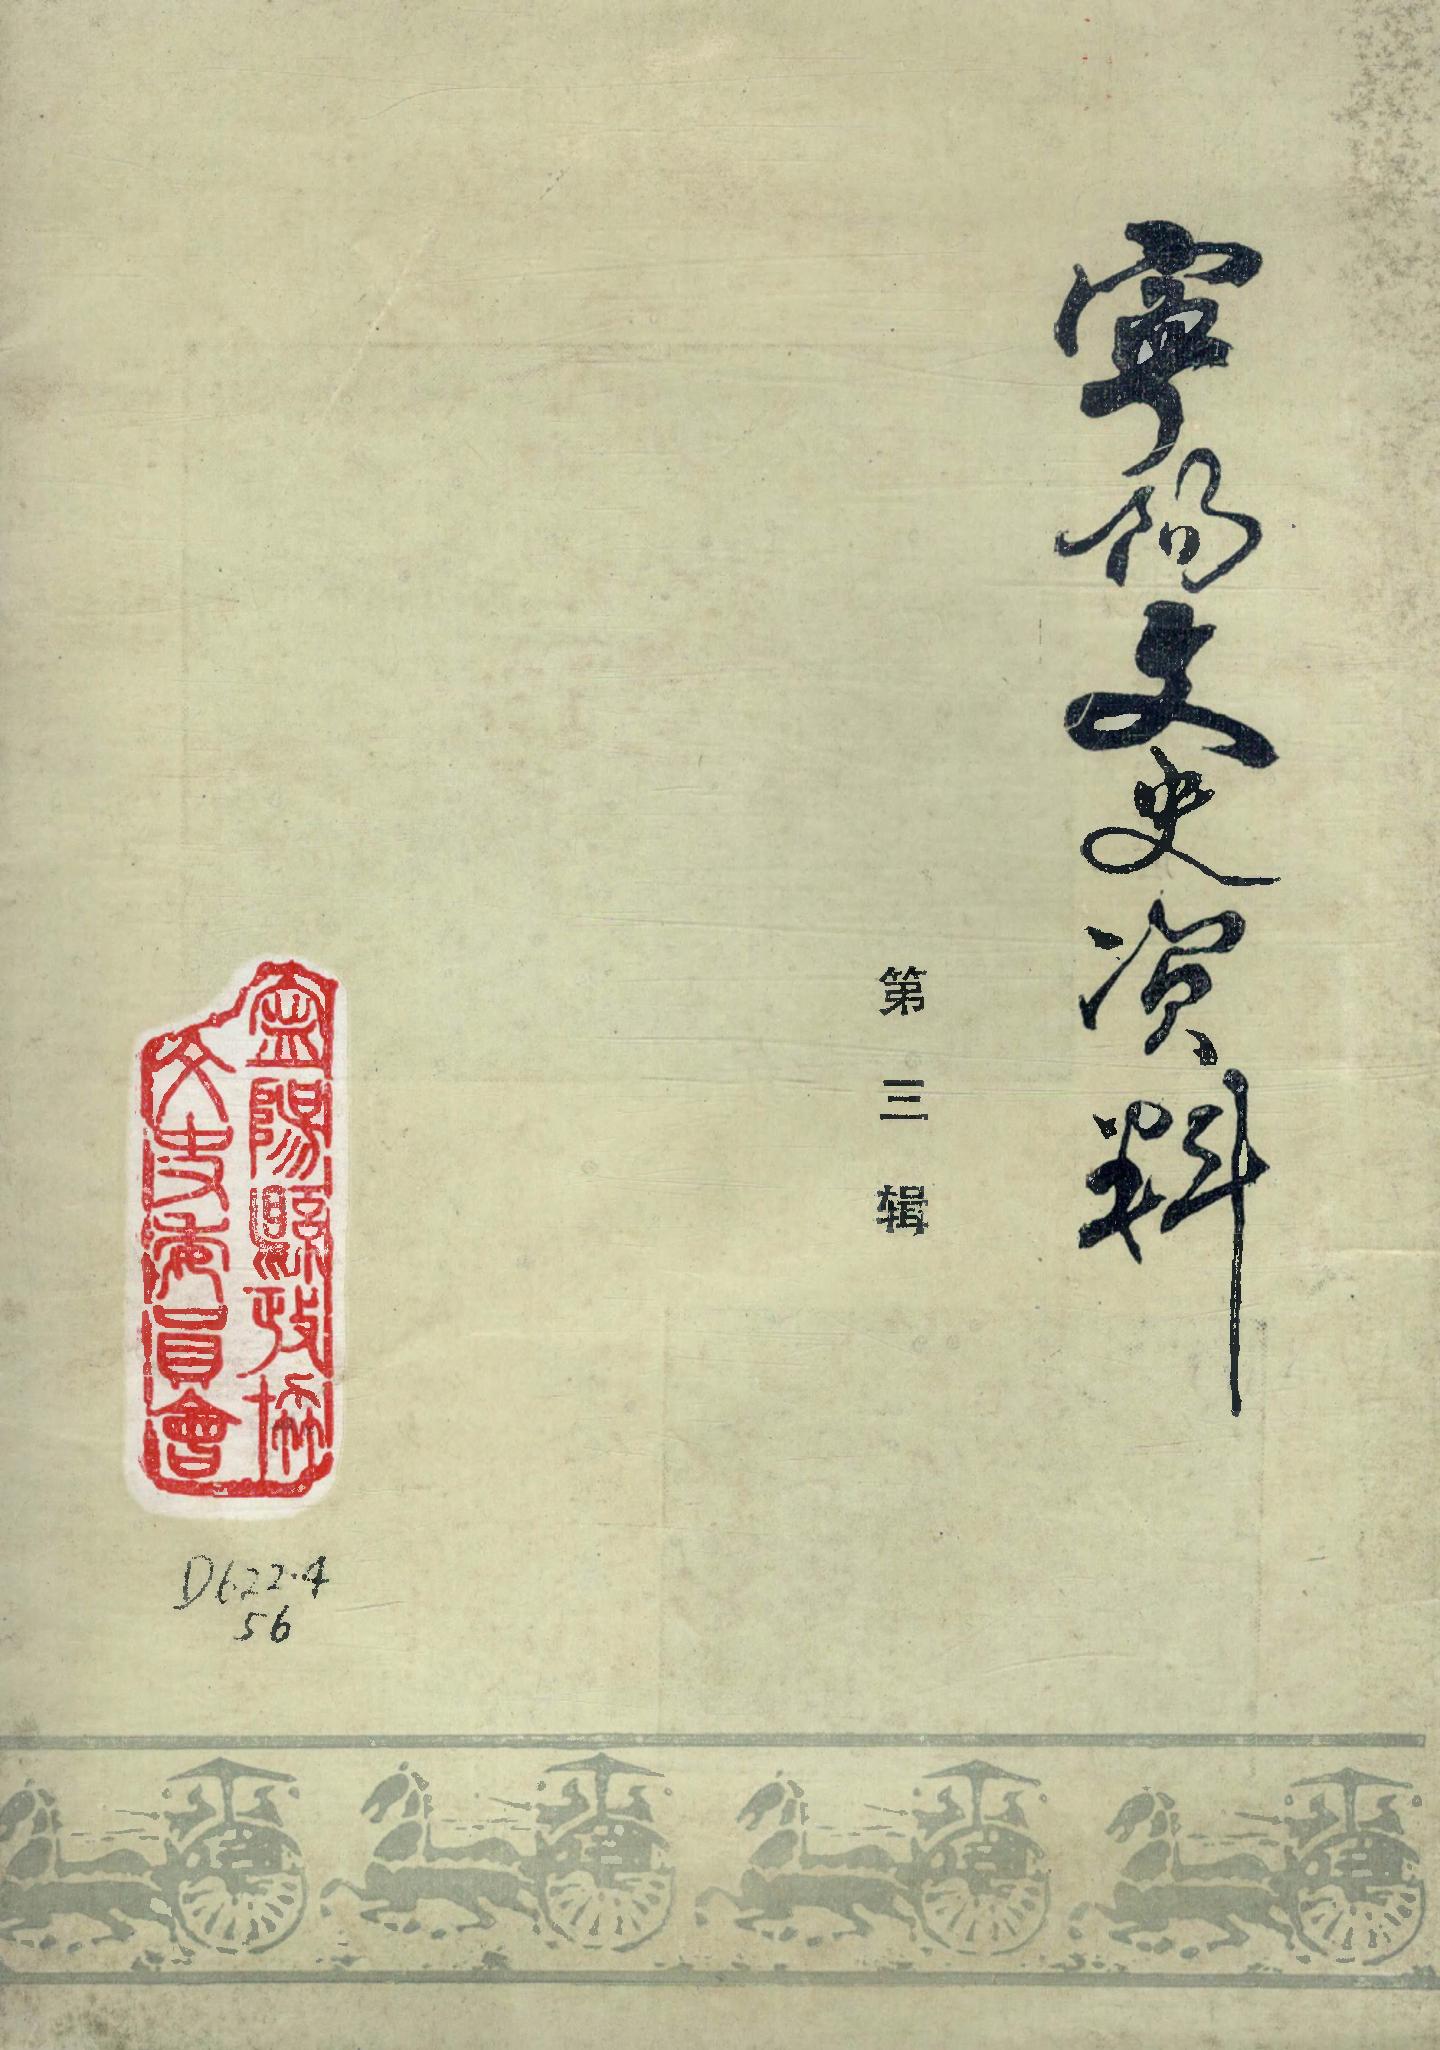 寧陽文史资料
第三辑
寧陽縣政協
文史委員會
D622.4
56